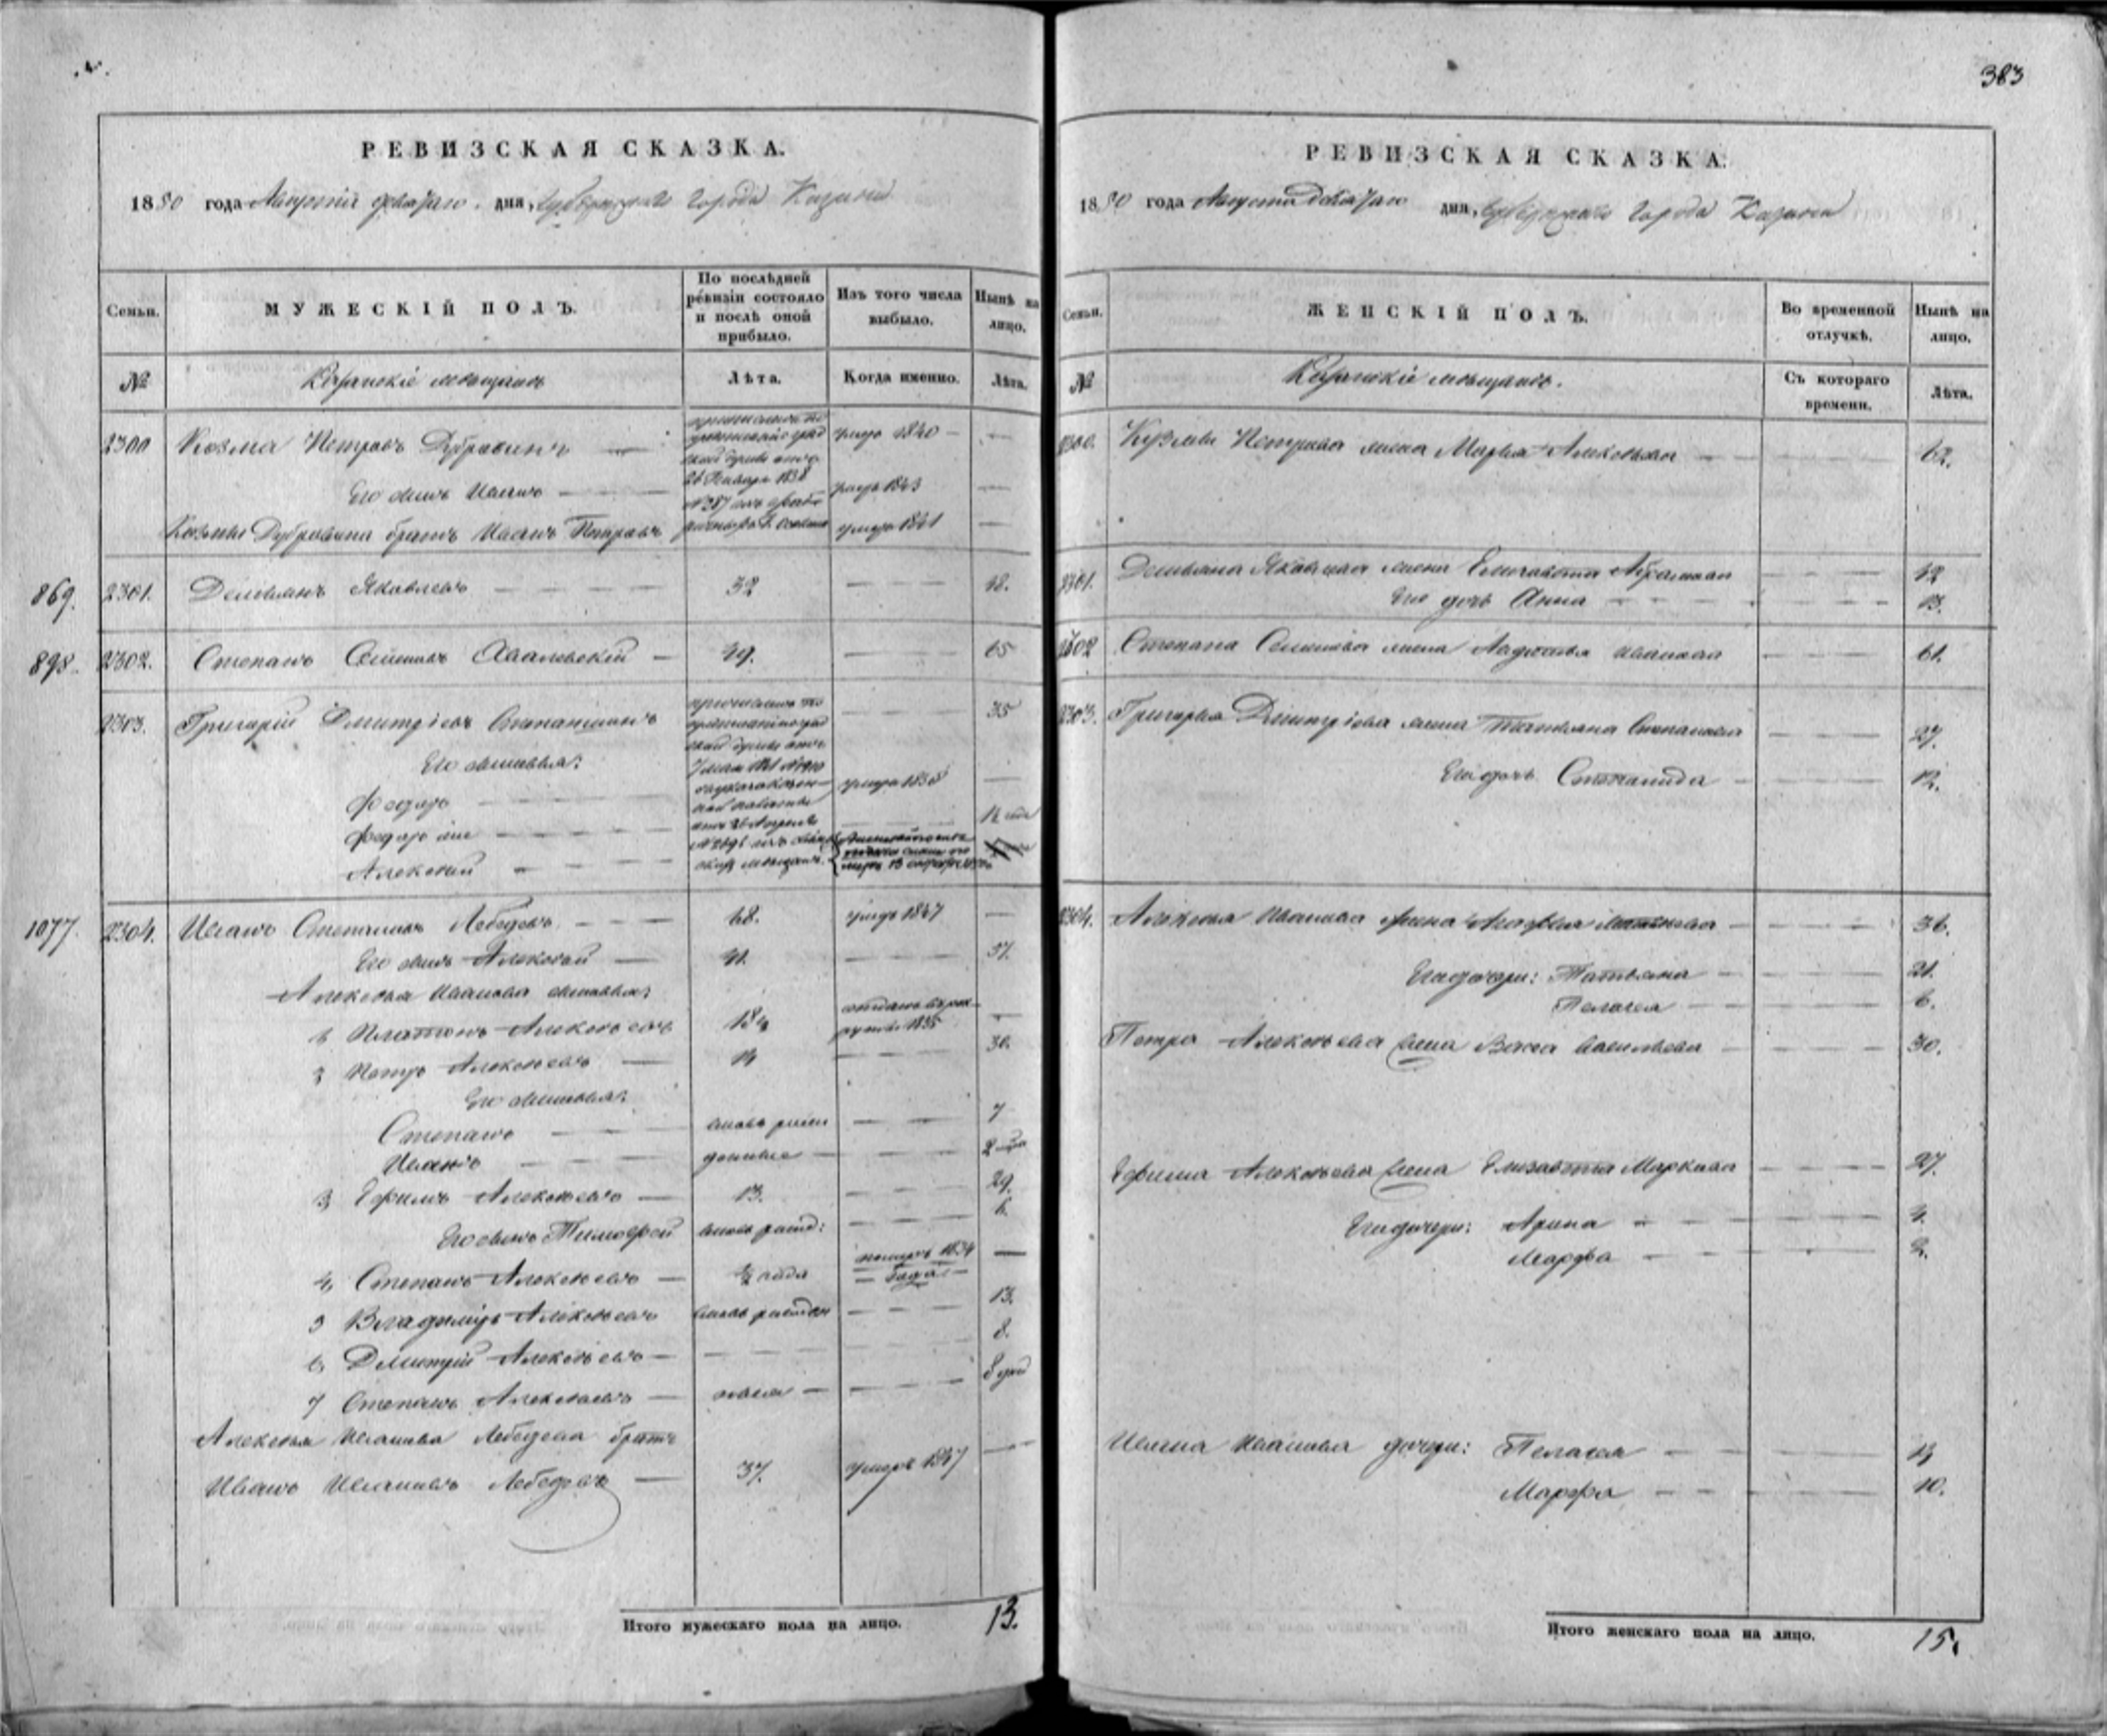 383
РЕВИЗСКАЯ СКАЗКА.
1850 года Августа дня, Губернскаго Города Казани
Семьи. МУЖЕСКІЙ ПОЛЪ. По послѣдней ревизіи состояло и послѣ оной прибыло. Изъ того числа выбыло. Нынѣ на лицо.
№ Казанскіе мѣщане Лѣта. Когда именно. Лѣта.
2300 Козма Петровъ Дубровинъ — умеръ 1840 —
Его сынъ Иванъ — умеръ 1843 —
26 Января 1838
№ 287
Козмы Дубровина братъ Иванъ Петровъ умеръ 1841 —
869. 2301. Демьянъ Яковлевъ — 32 — 48.
898. 2302. Степанъ Семеновъ — 49. — 65
2303. Григорій Дмитріевъ — 35
Его сыновья:
Федоръ — умеръ 1838 —
Федоръ же —
Алексей —
1077. 2304. Иванъ Степановъ Лебедевъ — 68. умеръ 1847 —
Его сынъ Алексей — 41. — 57.
Алексея Иванова сыновья:
1 Платонъ Алексеевъ 18½ отданъ въ рекруты 1835 —
2 Петръ Алексеевъ — 14 — 30.
Его сыновья:
Степанъ — вновь рожден — 7
Иванъ — данные — 2 года
3 Ефимъ Алексеевъ — 13. — 29.
Его сынъ Тимофей вновь рожд: — 6.
4 Степанъ Алексеевъ — ½ года померъ 1834 года —
5 Владиміръ Алексеевъ вновь рожден — 13.
6 Дмитрій Алексеевъ — 8.
7 Степанъ Алексеевъ —
Алексея Иванова Лебедева братъ
Иванъ Ивановъ Лебедевъ — 37. умеръ 1847 —
Итого мужескаго пола на лицо. 13.
РЕВИЗСКАЯ СКАЗКА.
1850 года Августа дня, Губернскаго Города Казани
Семьи. ЖЕНСКІЙ ПОЛЪ. Во временной отлучкѣ. Нынѣ на лицо.
№ Казанскіе мѣщане. Съ котораго времени. Лѣта.
2300. Кузмы Петрова жена Марья Алексеева — 62.
2301. Демьяна Яковлева жена Елизавета Абрамова — 42
Его дочь Анна — 13.
2302 Степана Семенова жена Иванова — 61.
2303. Григорья Дмитріева жена Татьяна Степанова — 27.
Его дочь Степанида — 12.
2304. Алексея Иванова жена — 36.
Его дочери: Татьяна — 21.
Пелагея — 6.
Петра Алексеева жена Васса Васильева — 30.
Ефима Алексеева жена Елизавета Маркова — 27.
Его дочери: Арина — 4.
Марфа — 2.
Ивана Иванова дочери: Пелагея — 14
Марфа — 10.
Итого женскаго пола на лицо. 15.